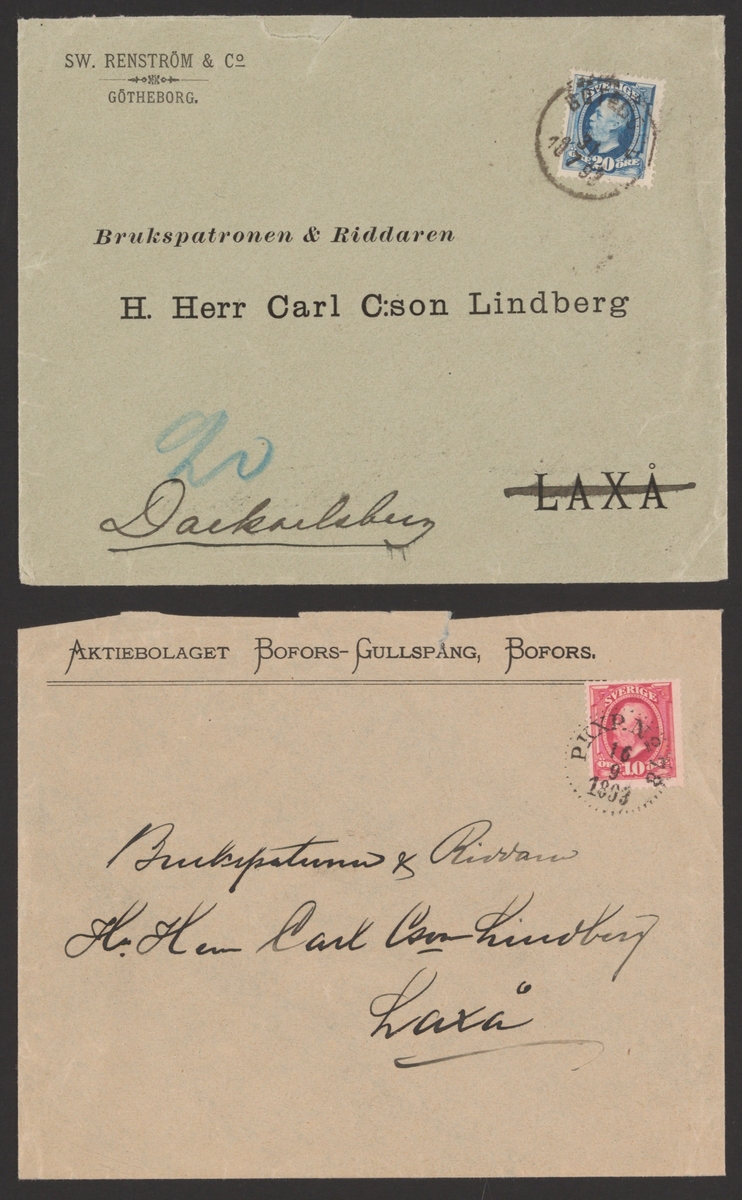 SW. RENSTRÖM & Co
GÖTHEBORG.
SVERIGE
20 ÖRE
10 7 93
Brukspatronen & Riddaren
H. Herr Carl C:son Lindberg
20
LAXÅ
AKTIEBOLAGET BOFORS-GULLSPÅNG, BOFORS.
SVERIGE
PKXP. N.
16
9
1893
10
Brukspatronen & Riddaren
Hr. Herr Carl Cson Lindberg
Laxå